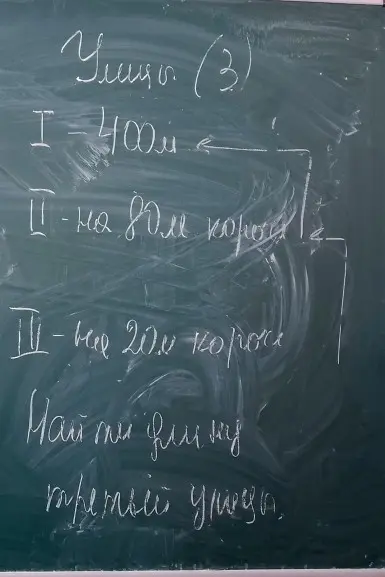 Улицы (3)
I - 400м
II - на 80м короч
III - на 20м короч
Найти длину
третьей улицы.